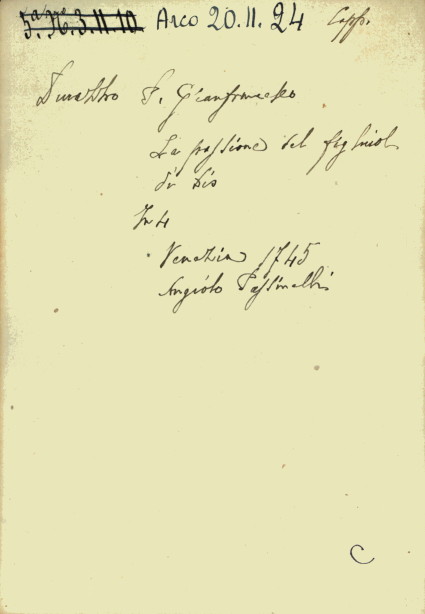 5ª N. 3. II. 10 Arco 20. II. 24 Capp.
Durazzo P. Gianfrancesko
La passione del figliuol
di Dio
In 4
Venezia 1745
Angiolo Passinelli
C